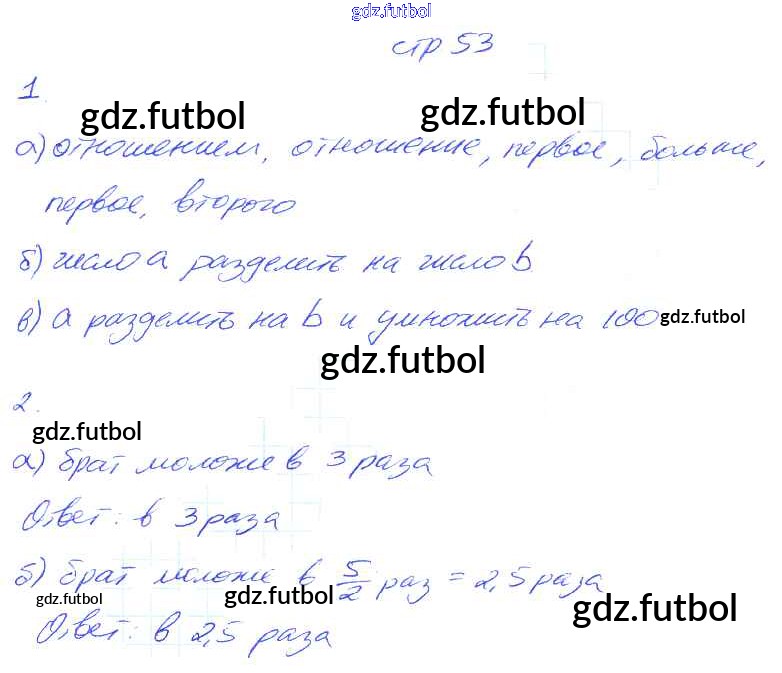 gdz.futbol
стр 53
1.
gdz.futbol gdz.futbol
а) отношением, отношение, первое, больше,
первое, второго
б) число a разделить на число b
в) a разделить на b и умножить на 100 gdz.futbol
gdz.futbol
2.
gdz.futbol
а) брат моложе в 3 раза
Ответ: в 3 раза
б) брат моложе в 5/2 раз = 2,5 раза
gdz.futbol gdz.futbol gdz.futbol
Ответ: в 2,5 раза